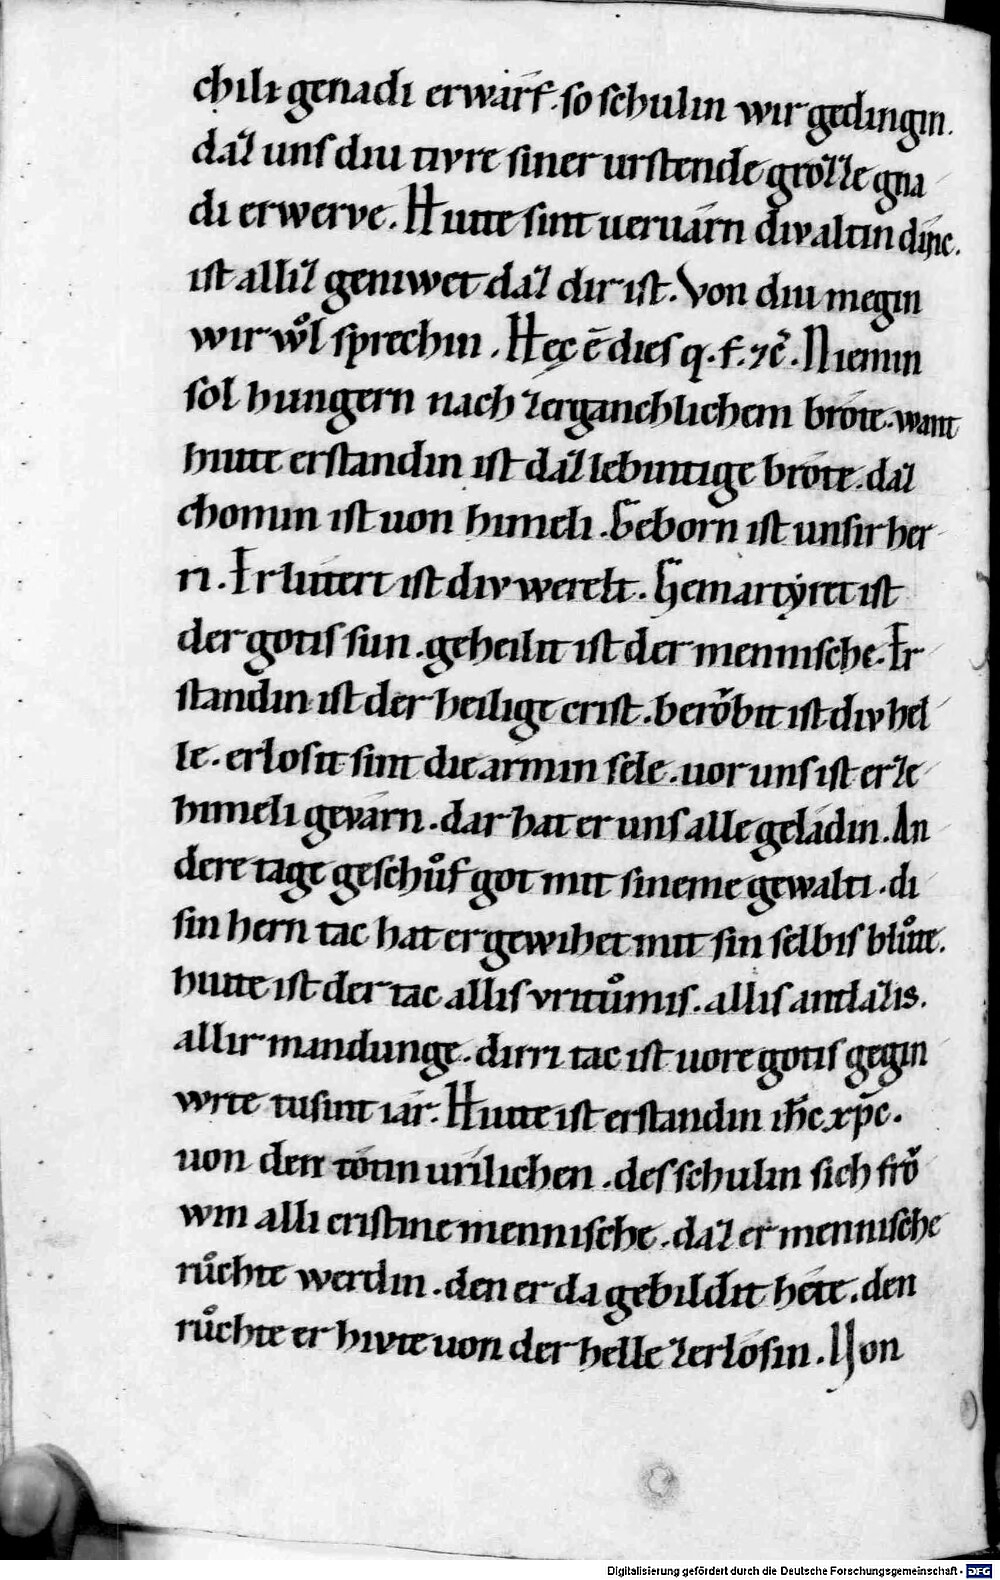 chili genadi erwarf. so schulin wir gedingin.
daz uns diu tivre siner urstende grozze gna
di erwerve. Hutte sint uervarn div altin dinc.
ist alliz geniwet daz dir ist. Von diu megin
wir wͦl sprechin. Hęc ē dies q. f. ⁊c̄. Niemin
sol hungern nach zerganchlichem brote. want
hutte erstandin ist daz lebintige brote. daz
chomin ist uon himeli. Geborn ist unsir her
ri. Irlutert ist div werelt. Gemartyret ist
der gotis sun. geheilit ist der mennische. Ir
standin ist der heilige crist. berǒbit ist div hel
le. erlosit sint die armin sele. uor uns ist er ze
himeli gevarn. dar hat er uns alle geladin. An
dere tage geschůf got mit sineme gewalti. di
sin hern tac hat er gewihet mit sin selbis blůtte.
hutte ist der tac allis vritůmis. allis antlazis.
allir mandunge. dirri tac ist uore gotis gegin
wrte tusint iar. Hutte ist erstandin ih̄c xp̄c.
uon den totin urilichen. des schulin sich frǒ
win alli cristine mennische. daz er mennische
růchte werdin. den er da gebildit hete. den
růchte er hivte uon der helle zerlosin. Von
Digitalisierung gefördert durch die Deutsche Forschungsgemeinschaft - DFG